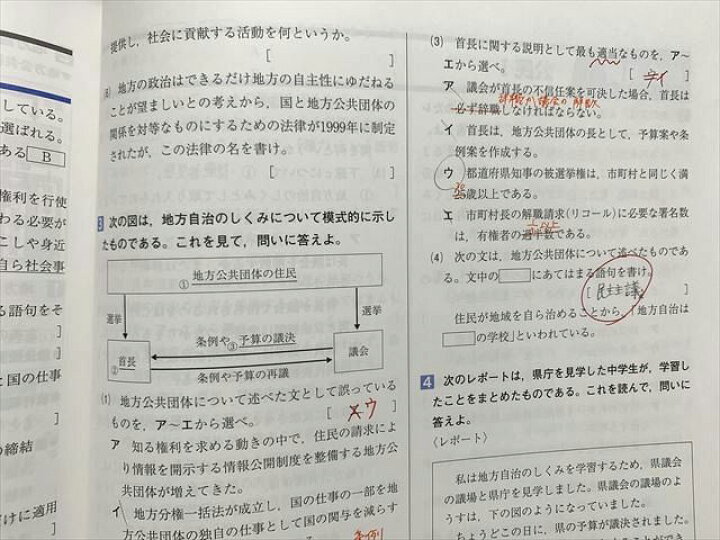 している。
選ばれる。
ある B
権利を行使
わる必要が
こしや身近
自ら社会事
る語句をそ
]
]
と国の仕事
]
の締結
]
だけに適用
提供し,社会に貢献する活動を何というか。
[ ]
(5) 地方の政治はできるだけ地方の自主性にゆだねる
ことが望ましいとの考えから,国と地方公共団体の
関係を対等なものにするための法律が1999年に制定
されたが,この法律の名を書け。
[ ]
3 次の図は,地方自治のしくみについて模式的に示し
たものである。これを見て,問いに答えよ。
①地方公共団体の住民
選挙
選挙
条例や③予算の議決
首長
②
議会
条例や予算の再議
(1) 地方公共団体について述べた文として誤っている
ものを,ア~エから選べ。
[ ウ ]
ア 知る権利を求める動きの中で,住民の請求によ
り情報を開示する情報公開制度を整備する地方公
共団体が増えてきた。
イ 地方分権一括法が成立し,国の仕事の一部を地
方公共団体の独自の仕事として国の関与を減らす
条例
(3) 首長に関する説明として最も適当なものを,ア~
エから選べ。
[ イ ]
ア 議会が首長の不信任案を可決した場合,首長は
辞職か議会の解散
必ず辞職しなければならない。
イ 首長は,地方公共団体の長として,予算案や条
例案を作成する。
ウ 都道府県知事の被選挙権は,市町村と同じく満
25歳以上である。
エ 市町村長の解職請求(リコール)に必要な署名数
は,有権者の過半数である。
(4) 次の文は,地方公共団体について述べたものであ
る。文中の にあてはまる語句を書け。
[ 民主主義 ]
住民が地域を自ら治めることから,「地方自治は
の学校」といわれている。
4 次のレポートは,県庁を見学した中学生が,学習し
たことをまとめたものである。これを読んで,問いに
答えよ。
〈レポート〉
私は地方自治のしくみを学習するため,県議会
の議場と県庁を見学しました。県議会の議場のよ
うすは,下の図のようになっていました。
ちょうどこの日に,県の予算が決議されました。